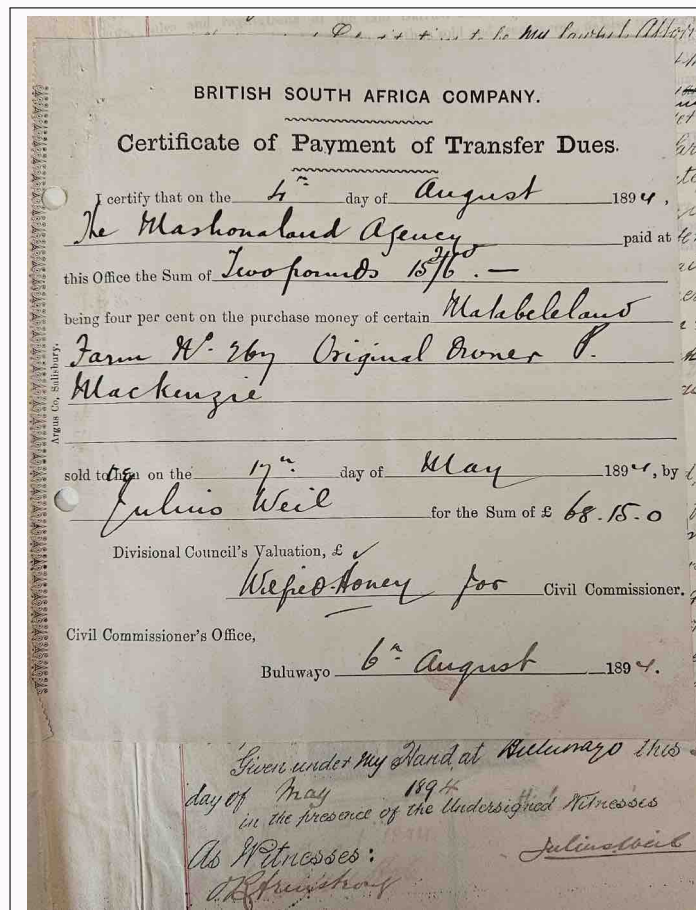 to be my lawful Attor
BRITISH SOUTH AFRICA COMPANY.
Certificate of Payment of Transfer Dues.
I certify that on the 4th day of August 1894,
The Mashonaland Agency paid at
this Office the Sum of Two pounds 15/6d. —
being four per cent on the purchase money of certain Matabeleland
Farm No. 267 Original Owner P.
Mackenzie
sold to on the 17th day of May 1894, by
Julius Weil for the Sum of £ 68.15.0
Divisional Council's Valuation, £ ✓
Wilfred Honey for Civil Commissioner.
Civil Commissioner's Office,
Buluwayo 6th August 1894.
Argus Co, Salisbury.
Given under My Hand at Buluwayo this
day of May 1894
in the presence of the Undersigned Witnesses
As Witnesses:
Julius Weil
Armstrong